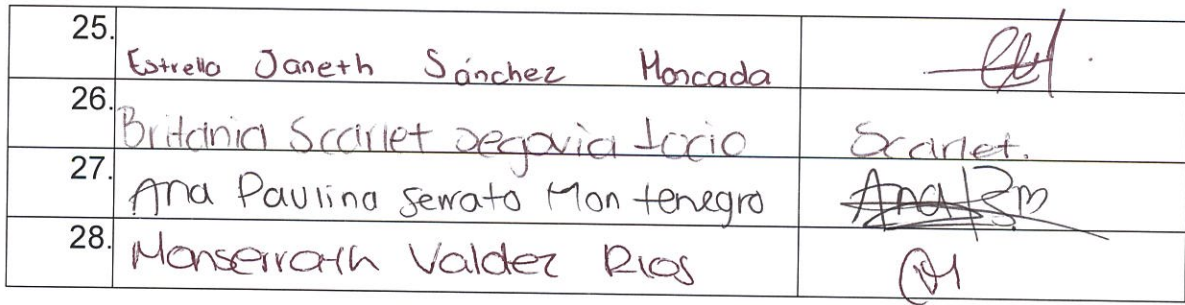 25. Estrella Janeth Sánchez Moncada
26. Britania Scarlet Segovia Scarlet.
27. Ana Paulina Serrato Montenegro
28. Monserrath Valdez Rios